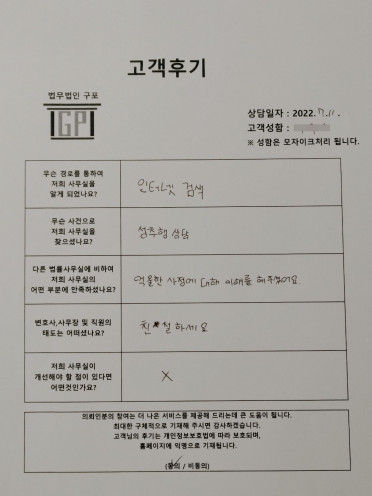 고객후기
법무법인 구포
IGPI
상담일자 : 2022. 7. 11.
고객성함 :
※ 성함은 모자이크처리 됩니다.
무슨 경로를 통하여
저희 사무실을
알게 되었나요?
인터넷 검색
무슨 사건으로
저희 사무실을
찾으셨나요?
성추행 상담
다른 법률사무실에 비하여
저희 사무실의
어떤 부분에 만족하셨나요?
억울한 사정에 대해 이해를 해주셨어요
변호사,사무장 및 직원의
태도는 어떠셨나요?
친절하세요
저희 사무실이
개선해야 할 점이 있다면
어떤것인가요?
X
의뢰인분의 참여는 더 나은 서비스를 제공해 드리는데 큰 도움이 됩니다.
최대한 구체적으로 기재해 주시면 감사하겠습니다.
고객님의 후기는 개인정보보호법에 따라 보호되며,
홈페이지에 익명으로 기재됩니다.
(동의 / 비동의)